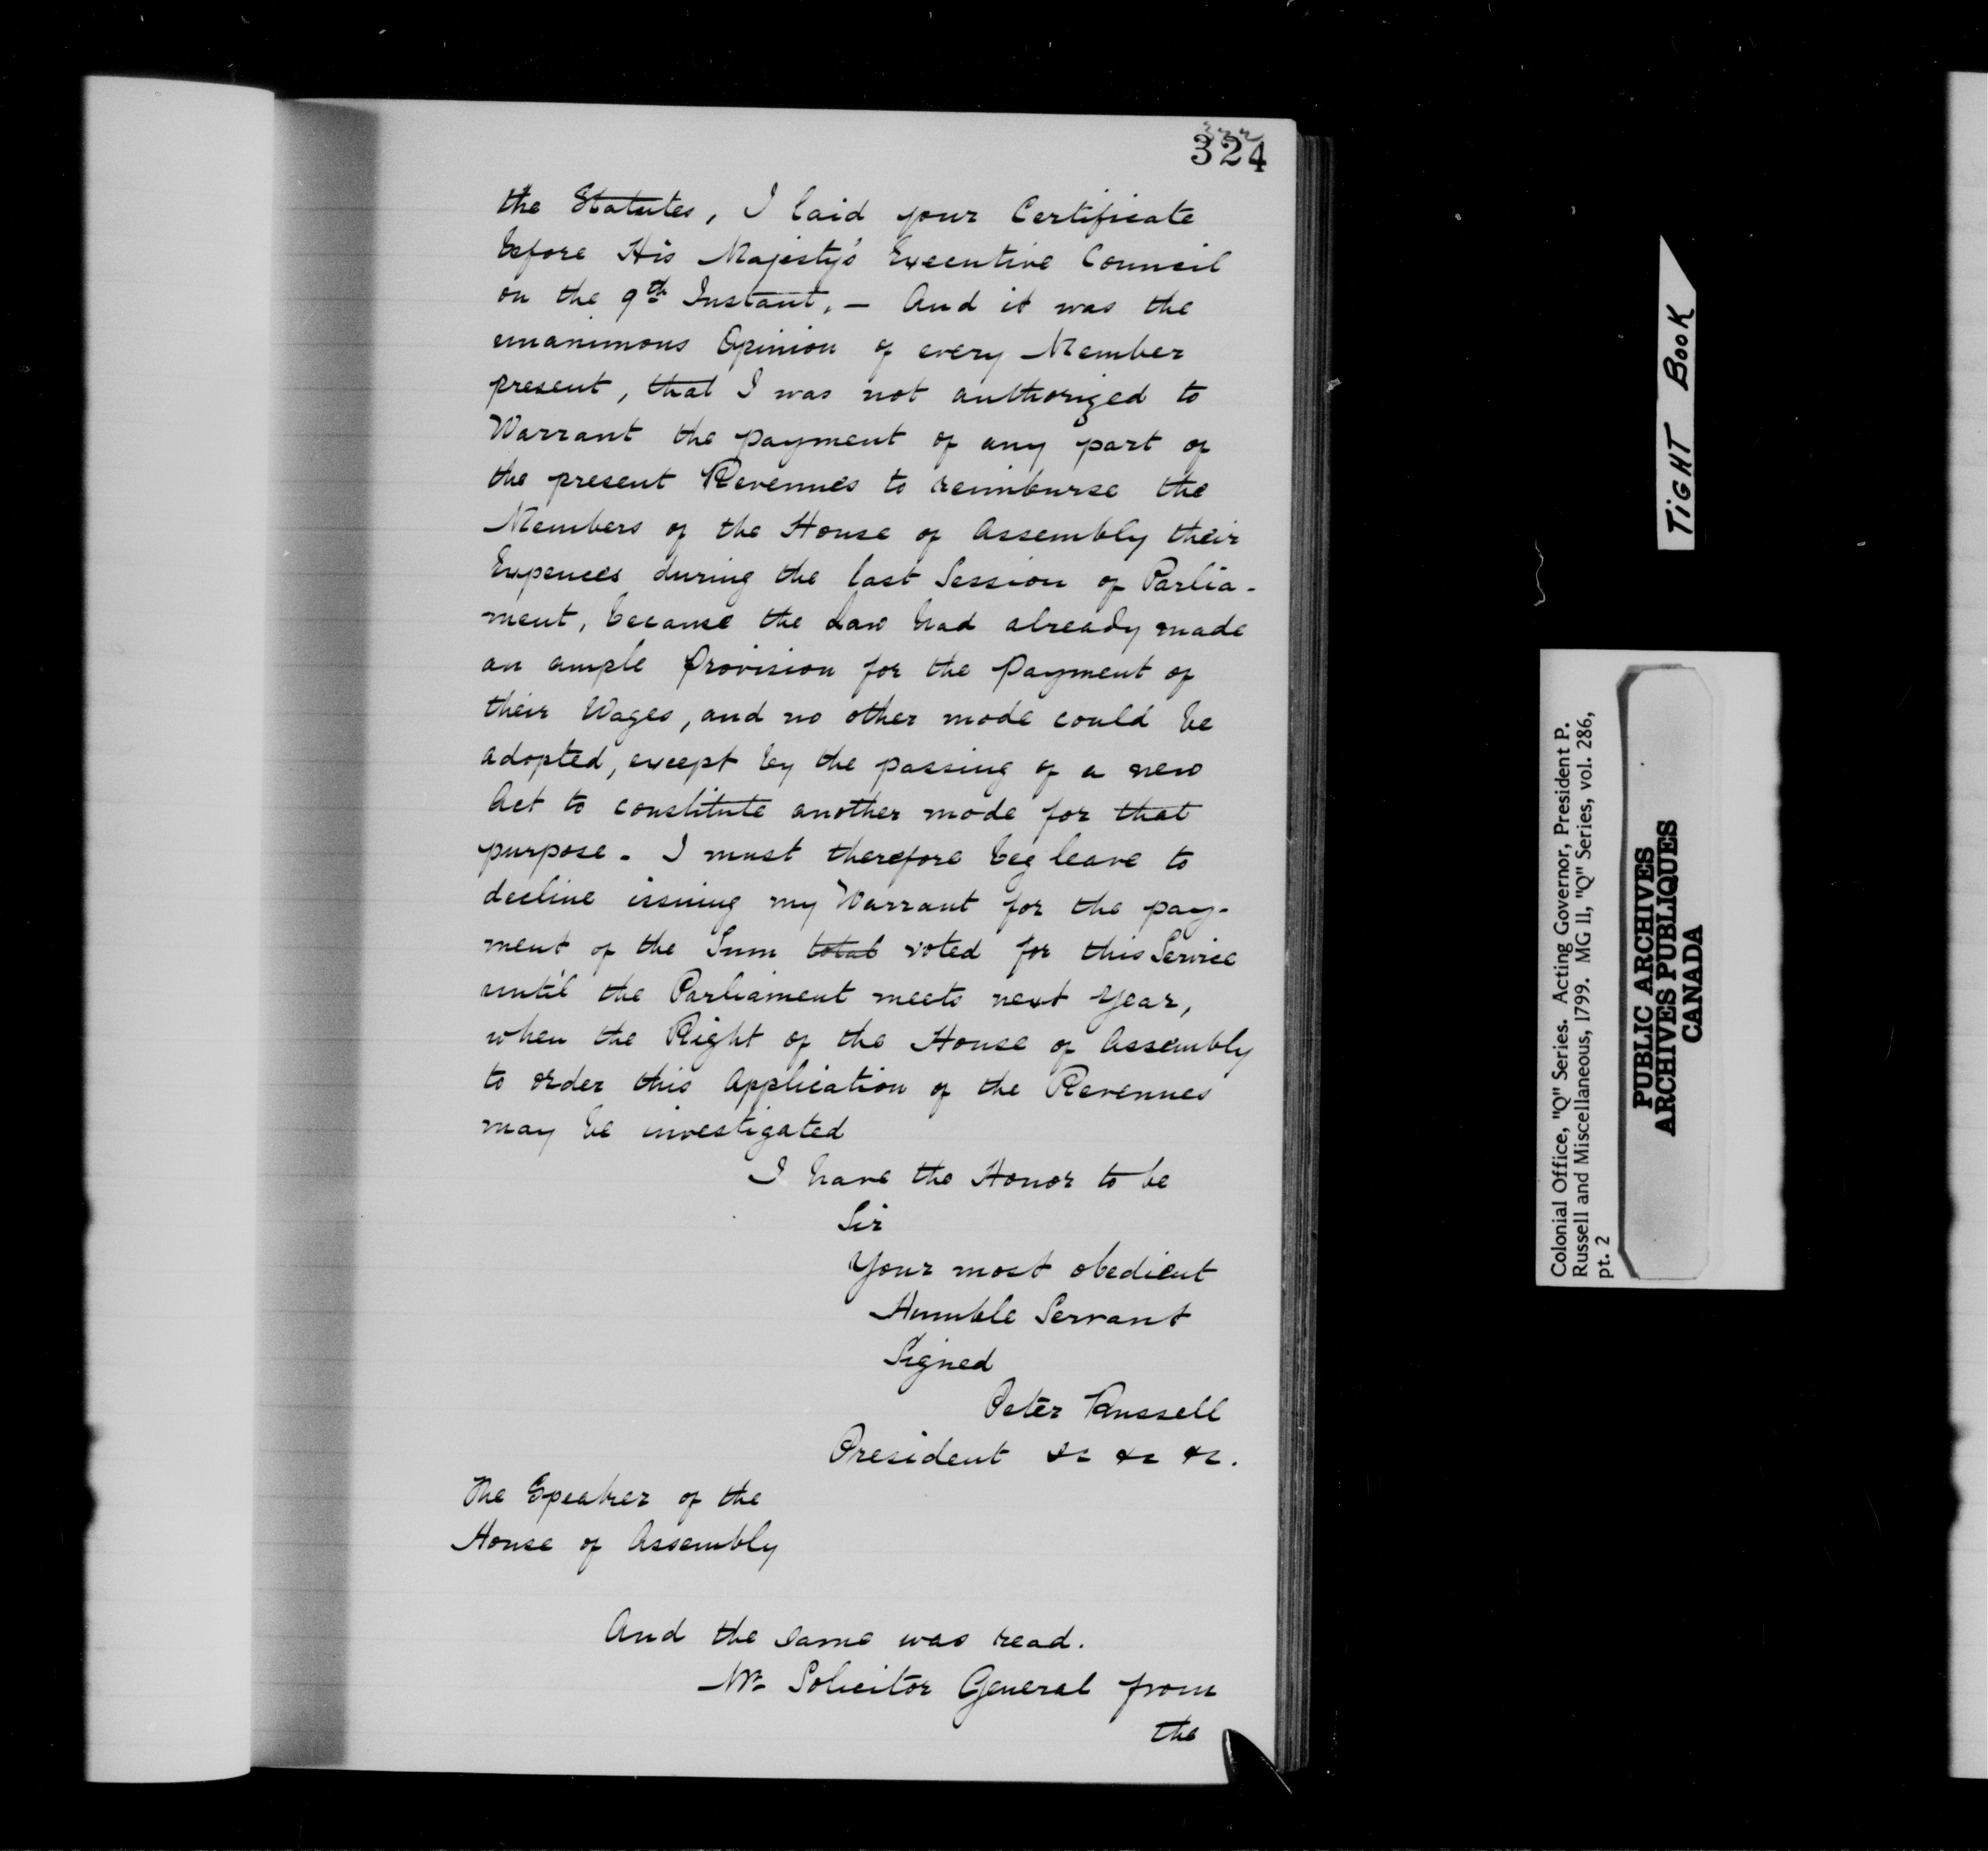 324
the Statutes, I laid your Certificate
before His Majesty's Executive Council
on the 9th Instant. — And it was the
unanimous Opinion of every Member
present, that I was not authorized to
Warrant the payment of any part of
the present Revenues to reimburse the
Members of the House of Assembly their
Expences during the last Session of Parlia-
ment, because the Law had already made
an ample provision for the Payment of
their Wages, and no other mode could be
adopted, except by the passing of a new
Act to constitute another mode for that
purpose. I must therefore beg leave to
decline issuing my Warrant for the pay-
ment of the Sum total voted for this Service
until the Parliament meets next Year,
when the Right of the House of Assembly
to order this Application of the Revenues
may be investigated
I have the Honor to be
Sir
Your most obedient
Humble Servant
Signed
Peter Russell
President &c &c &c.
The Speaker of the
House of Assembly
And the same was read.
Mr Solicitor General from
the
TIGHT BOOK
Colonial Office, "Q" Series. Acting Governor, President P.
Russell and Miscellaneous, 1799. MG 11, "Q" Series, vol. 286,
pt. 2
PUBLIC ARCHIVES
ARCHIVES PUBLIQUES
CANADA